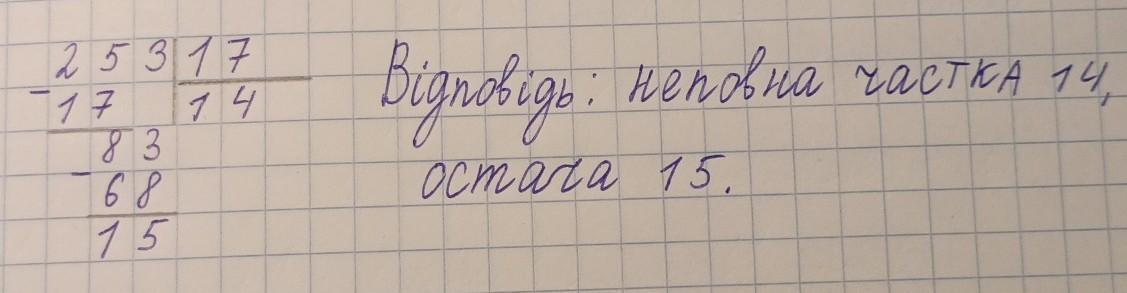 253 17
-17 14
83
-68
15
Відповідь: неповна частка 14,
остача 15.